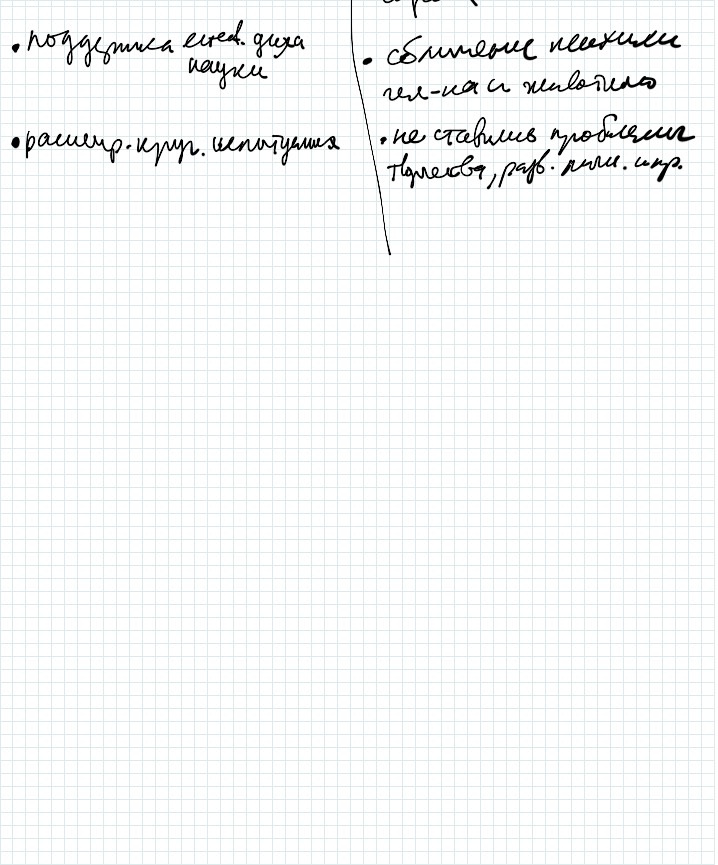 • поддержка естеств. духа
науки
• расшир. круг. испытуемых
• сближение психики
чел-ка и животного
• не ставились проблемы
творчества, разв. личн. и пр.